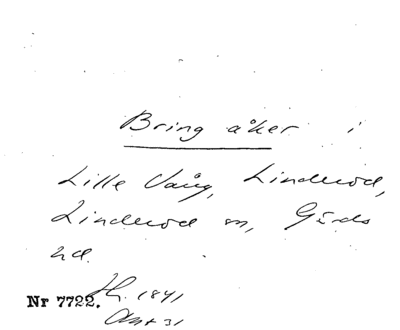 Bring åker i
Lille Vång, Linderöd,
Linderöd sn, Gärds
hd.
Nr 7722. H. 1841
Akt 31